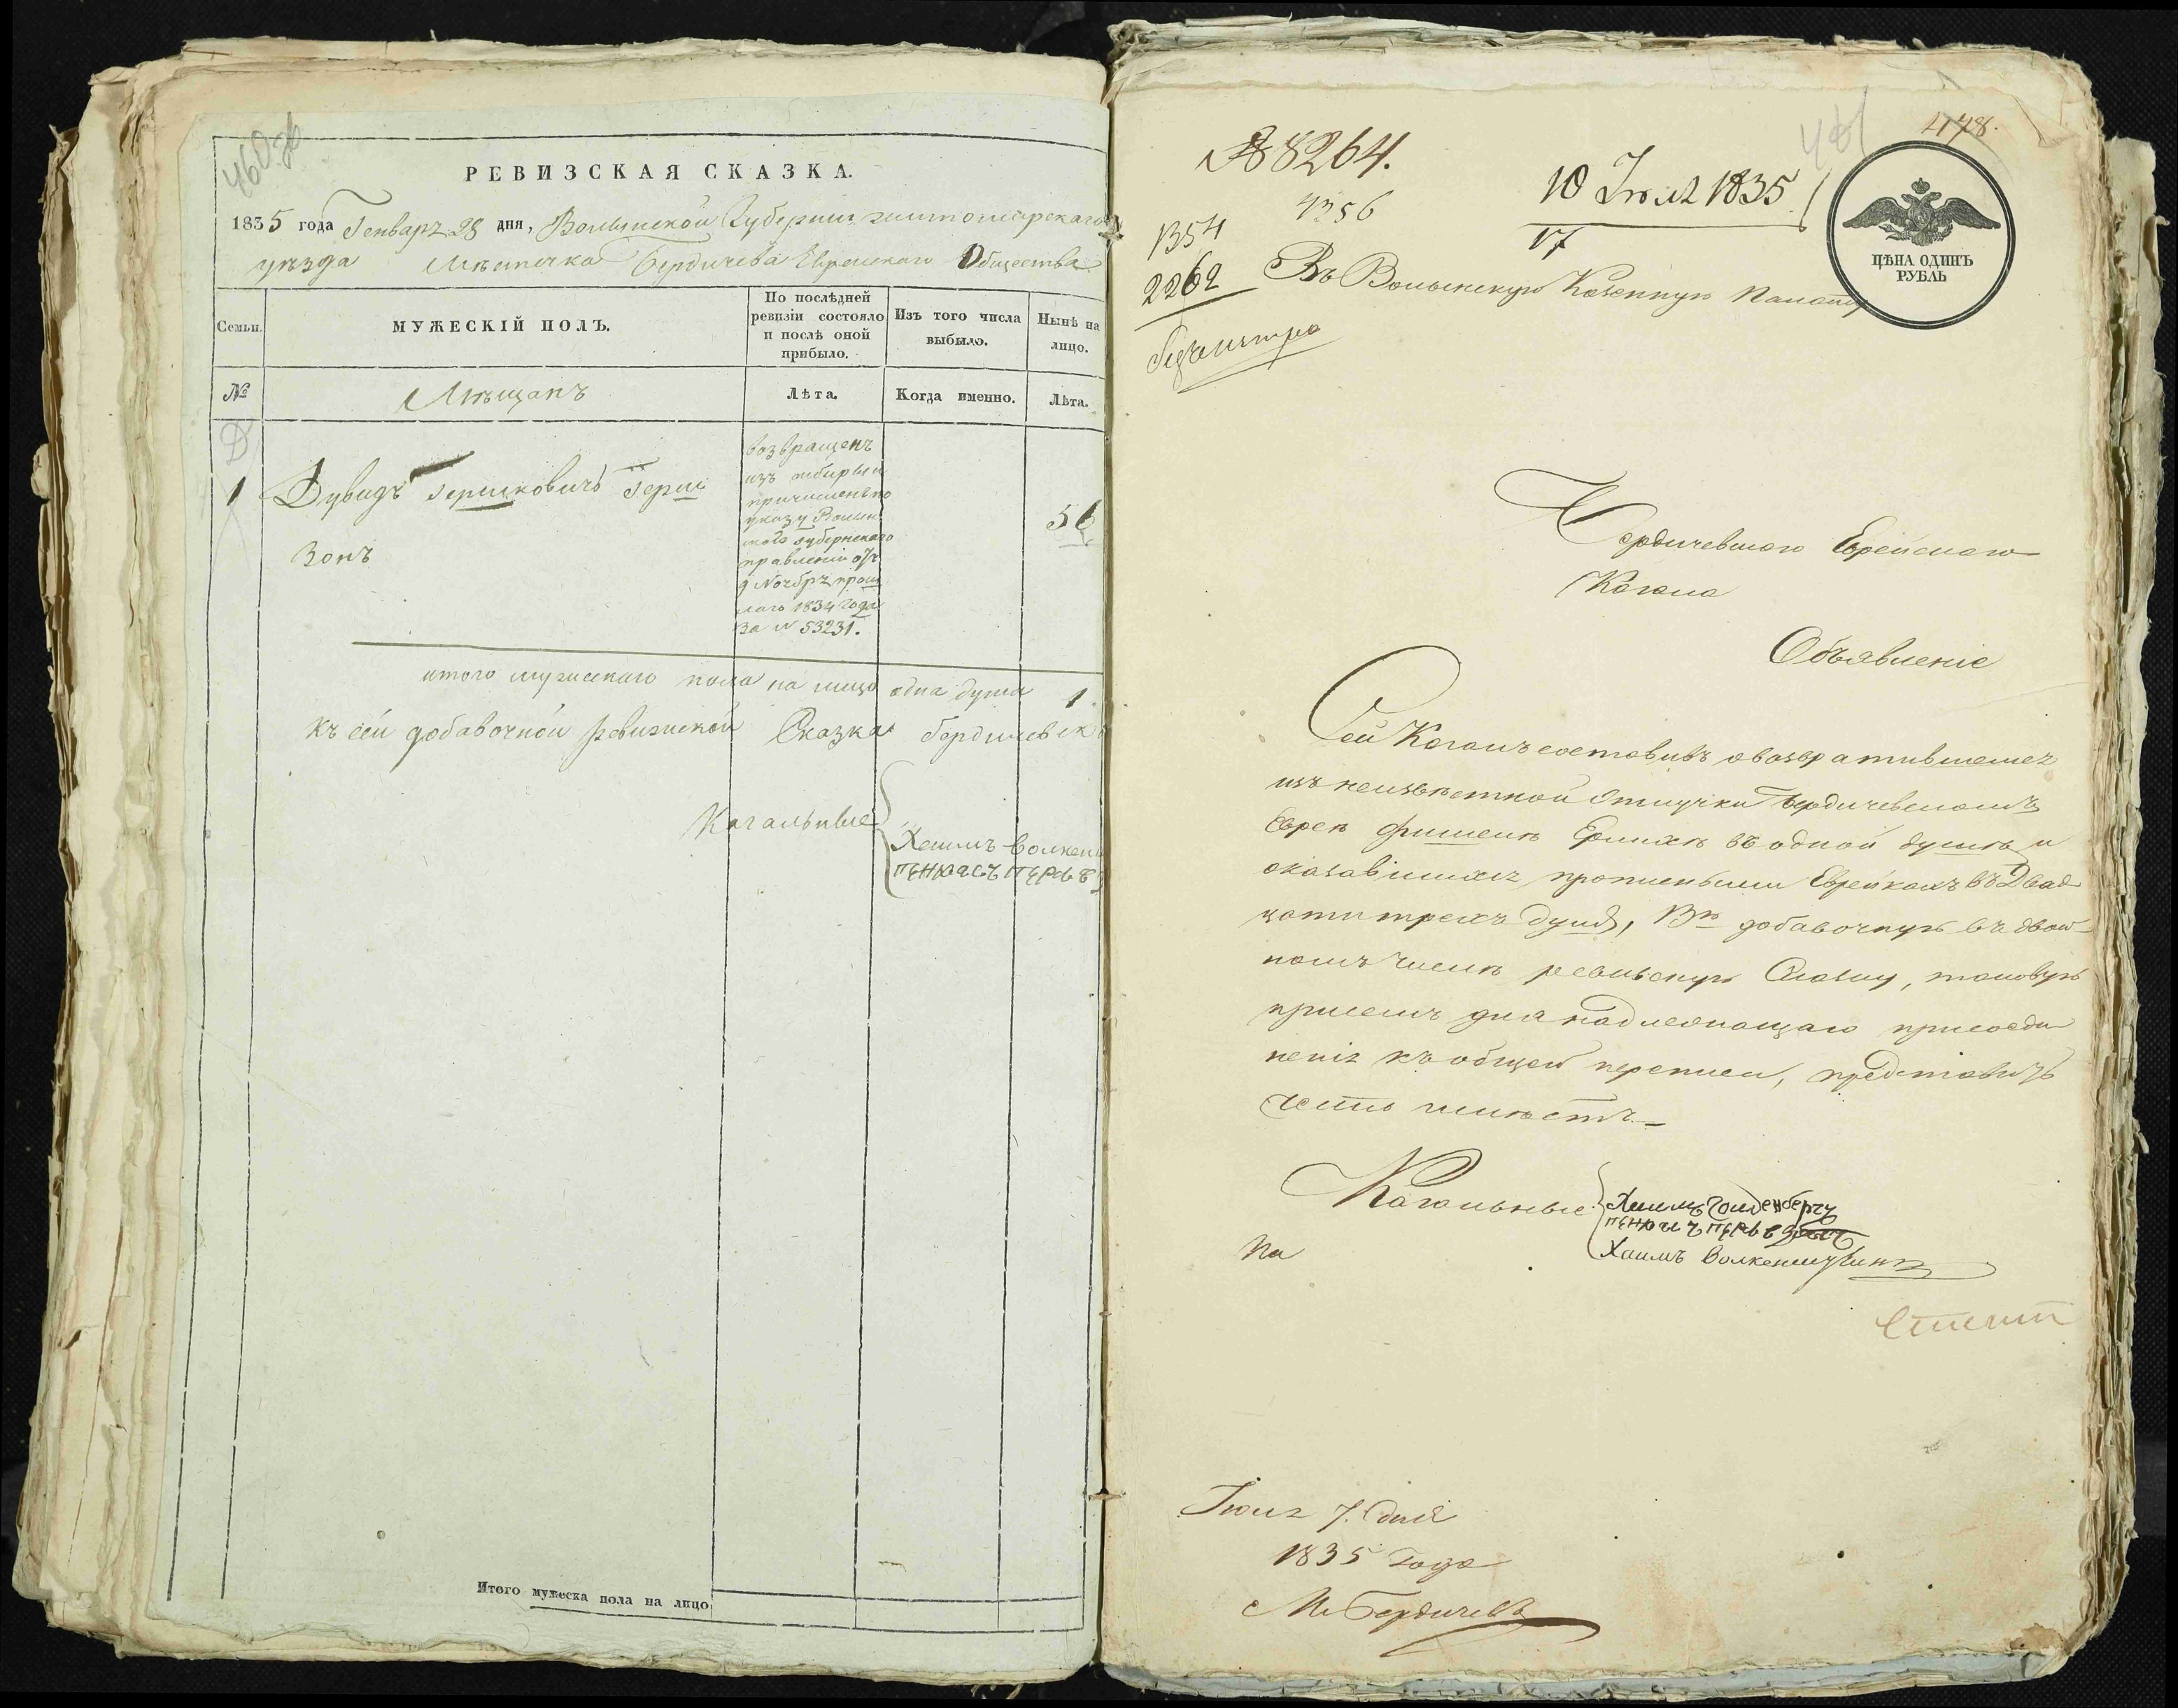 460 об
РЕВИЗСКАЯ СКАЗКА.
1835 года Генваря 28 дня, Волынской Губернии житомирскаго
уѣзда Мѣстечка Бердичева Еврейскаго Общества
Семьи.
МУЖЕСКІЙ ПОЛЪ.
По послѣдней
ревизіи состояло
и послѣ оной
прибыло.
Изъ того числа
выбыло.
Нынѣ на
лицо.
№
Мѣщанъ
Лѣта.
Когда именно.
Лѣта.
1
Дувидъ Гершковичъ Герш
зонъ
возвращенъ
изъ сибири и
причисленъ по
указу Волын
скаго губернскаго
правленія отъ
9 Ноября прош
лаго 1834 года
за № 53231.
56
итого мужескаго пола на лицо одна душа 1
Къ сей добавочной ревизской Сказки бердичевск
Кагальные
Хаимъ Волкен
пенюасъ перъ
Итого мужеска пола на лицо
478.
461
№ 8264.
4356
10 Июля 1835
17
1354
2262
ЦѢНА ОДИНЪ
РУБЛЬ
Въ Волынскую Казенную Палату
Бердичевскаго Еврейскаго
Кагала
Объявленіе
Сей Кагалъ составивъ о возвратившемся
изъ неизвѣстной отлучки Бердичевскомъ
Еврее Фишеле Ерлихе въ одной душе и
оказавшихся прописными Еврейкахъ въ Двад
цати трехъ душъ, добавочную въ двой
номъ числе ревизскую Сказку, таковую
присемъ для надлежащаго присоеди
ненія къ общей переписи, представить
честь имѣетъ
Кагальные
Хаимъ Голденбергъ
Хаимъ Волкенштеинъ
На
Июля 7. дня
1835 года
М. Бердичевъ